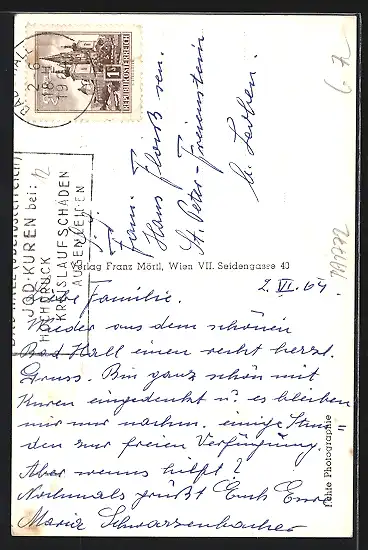 BAD HALL
2. 6.
18-H
19
REPUBLIK ÖSTERREICH
BAD HALL (OBERÖSTERREICH)
JOD-KUREN bei:
HOCHDRUCK
KREISLAUFSCHÄDEN
AUGENLEIDEN
Fam.
Hans Fleiß sen.
St. Peter-Freienstein
b. Leoben.
Verlag Franz Mörtl, Wien VII. Seidengasse 43
2. VI. 64.
Liebe Familie.
Wieder aus dem schönen
Bad Hall einen recht herzl.
Gruss. Bin ganz schön mit
Kuren eingedeckt u. es bleiben
mir nur nachm. einige Stun=
den zur freien Verfügung.
Aber wenns hilft?
Nochmals grüßt Euch Eure
Maria Schwarzenbacher
Echte Photographie